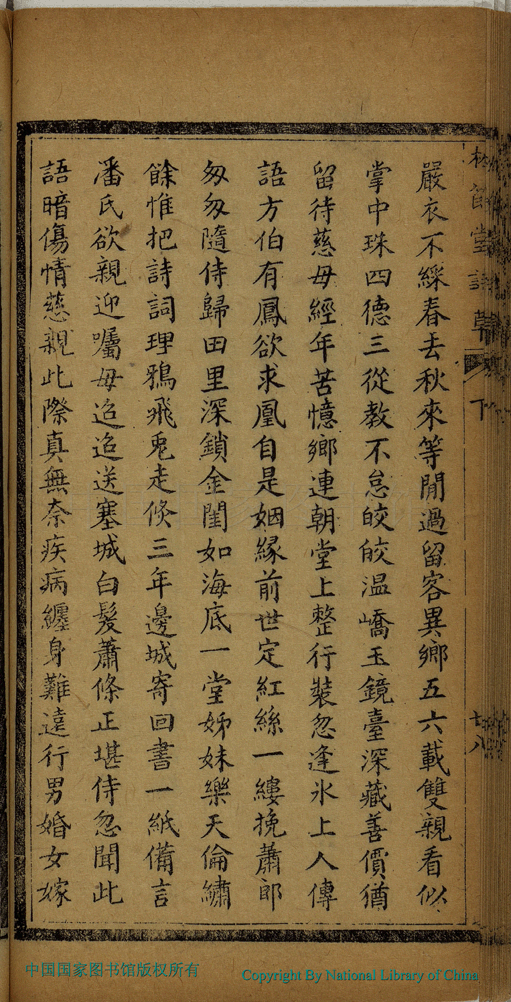 嚴衣不綵春去秋來等閒過留客異鄉五六載雙親看似
掌中珠四德三從教不怠皎皎温嶠玉鏡臺深藏善價猶
留待慈毋經年苦憶鄉連朝堂上整行裝忽逢氷上人傳
語方伯有鳳欲求凰自是姻緣前世定紅絲一縷挽蕭郎
匆匆隨侍歸田里深鎖金閨如海底一堂姊妹樂天倫繡
餘惟把詩詞理鴉飛兎走倐三年邊城寄回書一紙備言
潘氏欲親迎囑毋迢迢送塞城白髮蕭條正堪侍忽聞此
語暗傷情慈親此際真無奈疾病纏身難遠行男婚女嫁
堂詩
下
廿八
中国国家图书馆版权所有
Copyright By National Library of China